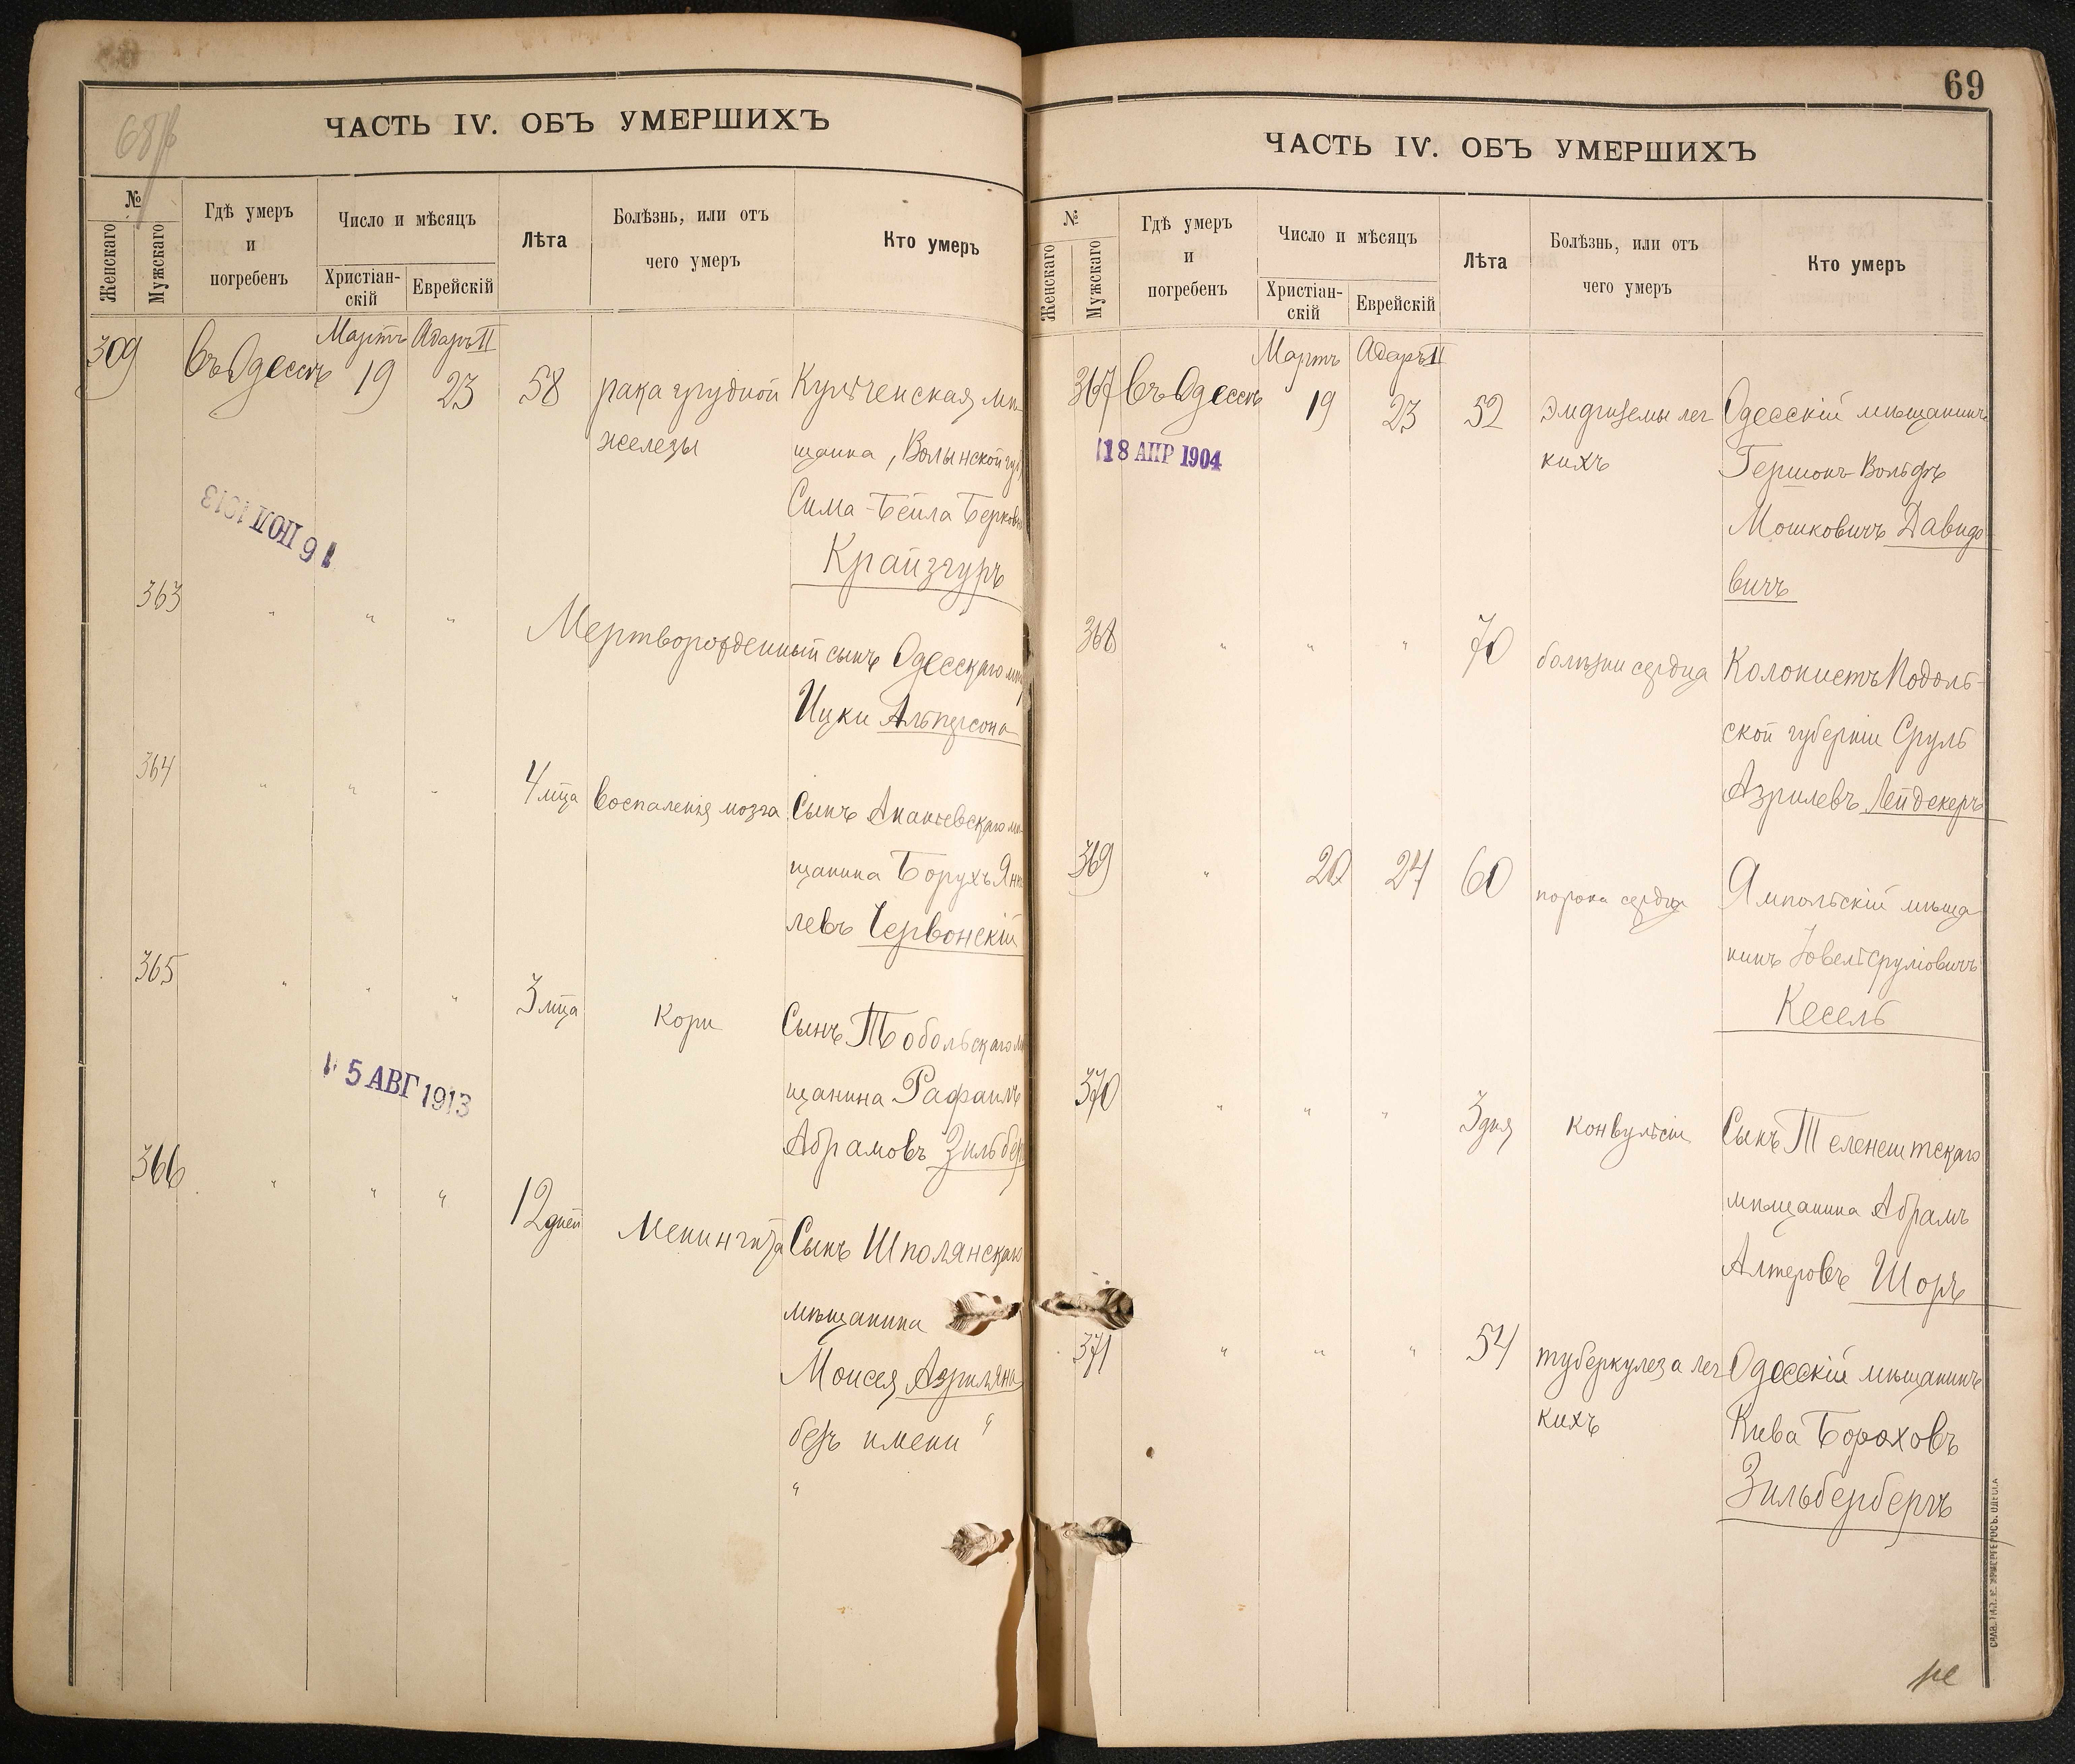 68 об
ЧАСТЬ IV. ОБЪ УМЕРШИХЪ
№
Женскаго
Мужскаго
Гдѣ умеръ
и
погребенъ
Число и мѣсяцъ
Христіан-
скій
Еврейскій
Лѣта
Болѣзнь, или отъ
чего умеръ
Кто умеръ
Мартъ Адаръ II
309 въ Одессѣ 19 23 58 рака грудной
железы
мѣ
щанка, Волынской губ
Сима-Бейла Берков
Крайзгуръ
16 ІЮЛ 1913
363 " " " Мертворожденный сынъ Одесскаго мѣщ
Ицки Альперсона
364 " " " 4 м-ца воспаленія мозга Сынъ Ананьевскаго мѣ
щанина Борухъ Янке
левъ Червонскій
365 " " " 3 м-ца Кори Сынъ Тобольскаго мѣ
щанина Рафаилъ
Абрамовъ Зильбер
15 АВГ 1913
366 " " " 12 дней Менингита Сынъ Шполянскаго
мѣщанина
Моисея Азриляна
безъ имени "
"
69
ЧАСТЬ IV. ОБЪ УМЕРШИХЪ
№
Женскаго
Мужскаго
Гдѣ умеръ
и
погребенъ
Число и мѣсяцъ
Христіан-
скій
Еврейскій
Лѣта
Болѣзнь, или отъ
чего умеръ
Кто умеръ
Мартъ Адаръ II
367 въ Одессѣ 19 23 52 эмфиземы лег
кихъ
Одесскій мѣщанинъ
Гершонъ-Вольфъ
Мошковичъ Давидо
вичъ
18 АПР 1904
368 " " " 70 болѣзни сердца Колонистъ Подоль-
ской губерніи Сруль
Азрилевъ Лейдекеръ
369 " 20 24 60 порока сердца Ямпольскій мѣща
нинъ Іовель Сруліовичъ
Кесель
370 " " " 3 дня Конвульсіи Сынъ Теленештскаго
мѣщанина Абрамъ
Алтеровъ Шоръ
371 " " " 54 туберкулеза лег
кихъ
Одесскій мѣщанинъ
Кива Бороховъ
Зильбербергъ